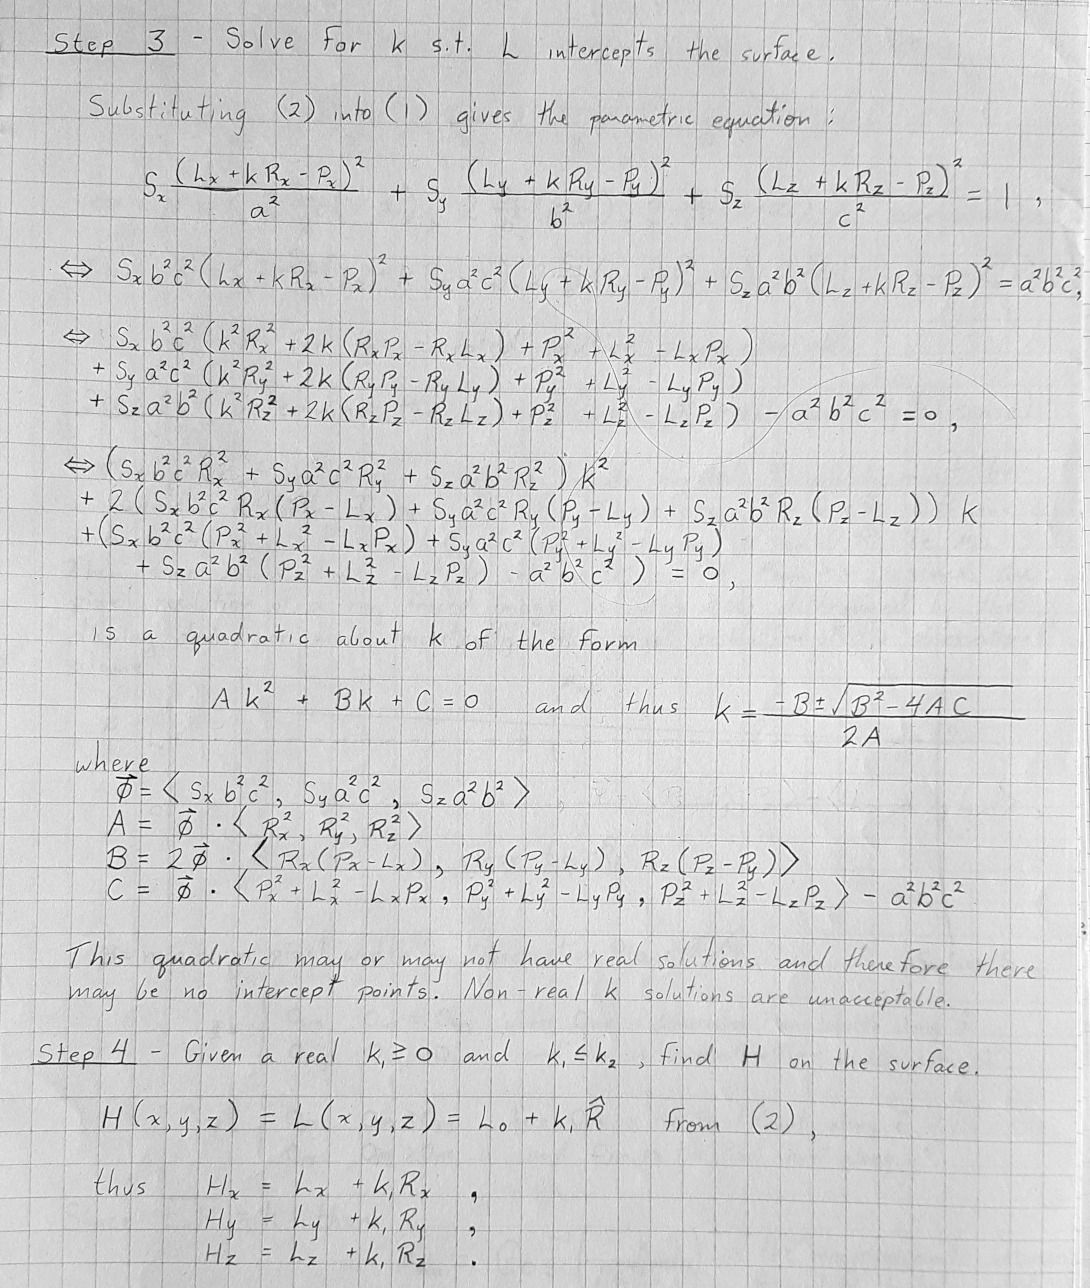 Step 3 - Solve for k s.t. L intercepts the surface.
Substituting (2) into (1) gives the parametric equation:
Sₓ (Lₓ + k Rₓ - Pₓ)² / a² + S_y (L_y + k R_y - P_y)² / b² + S_z (L_z + k R_z - P_z)² / c² = 1 ,
⇔ Sₓ b²c² (Lₓ + k Rₓ - Pₓ)² + S_y a²c² (L_y + k R_y - P_y)² + S_z a²b² (L_z + k R_z - P_z)² = a²b²c²,
⇔ Sₓ b²c² (k² Rₓ² + 2k (Rₓ Pₓ - Rₓ Lₓ) + Pₓ² + Lₓ² - Lₓ Pₓ)
+ S_y a²c² (k² R_y² + 2k (R_y P_y - R_y L_y) + P_y² + L_y² - L_y P_y)
+ S_z a²b² (k² R_z² + 2k (R_z P_z - R_z L_z) + P_z² + L_z² - L_z P_z) - a²b²c² = 0 ,
⇔ (Sₓ b²c² Rₓ² + S_y a²c² R_y² + S_z a²b² R_z²) k²
+ 2 (Sₓ b²c² Rₓ (Pₓ - Lₓ) + S_y a²c² R_y (P_y - L_y) + S_z a²b² R_z (P_z - L_z)) k
+ (Sₓ b²c² (Pₓ² + Lₓ² - Lₓ Pₓ) + S_y a²c² (P_y² + L_y² - L_y P_y)
+ S_z a²b² (P_z² + L_z² - L_z P_z) - a²b²c² ) = 0 ,
is a quadratic about k of the form
A k² + B k + C = 0 and thus k = (-B ± √(B² - 4 A C)) / 2A
where
Φ⃗ = ⟨ Sₓ b²c², S_y a²c², S_z a²b² ⟩
A = Φ⃗ · ⟨ Rₓ², R_y², R_z² ⟩
B = 2 Φ⃗ · ⟨ Rₓ (Pₓ - Lₓ), R_y (P_y - L_y), R_z (P_z - P_y) ⟩
C = Φ⃗ · ⟨ Pₓ² + Lₓ² - Lₓ Pₓ, P_y² + L_y² - L_y P_y, P_z² + L_z² - L_z P_z ⟩ - a²b²c²
This quadratic may or may not have real solutions and therefore there
may be no intercept points. Non-real k solutions are unacceptable.
Step 4 - Given a real k₁ ≥ 0 and k₁ ≤ k₂ , find H on the surface.
H (x, y, z) = L (x, y, z) = L₀ + k₁ R̂ from (2) ,
thus Hₓ = Lₓ + k₁ Rₓ ,
H_y = L_y + k₁ R_y ,
H_z = L_z + k₁ R_z .